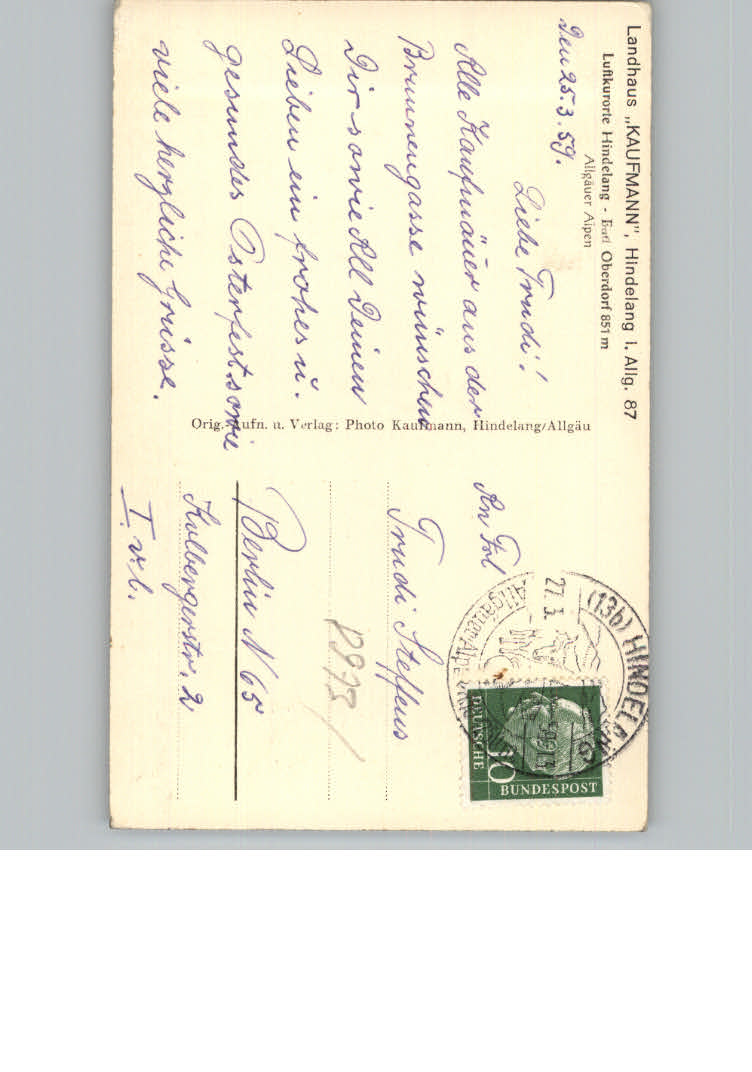 Landhaus „KAUFMANN", Hindelang i. Allg. 87
Luftkurorte Hindelang - Bad Oberdorf 851 m
Allgäuer Alpen
Den 25.3.59.
Liebe Trudi!
Alle Kaufmäuer aus der
Brunnengasse wünschen
Dir sowie All Deinen
Lieben ein frohes u.
gesundes Osterfest sowie
viele herzliche Grüsse.
Orig.-Aufn. u. Verlag: Photo Kaufmann, Hindelang/Allgäu
An Frl
Trudi Steffens
Berlin N 65
Kolbergerstr. 2
I. v. l.
8973
(13b) HINDELANG
27.3.
Allgäuer Alpen
DEUTSCHE
BUNDESPOST
10